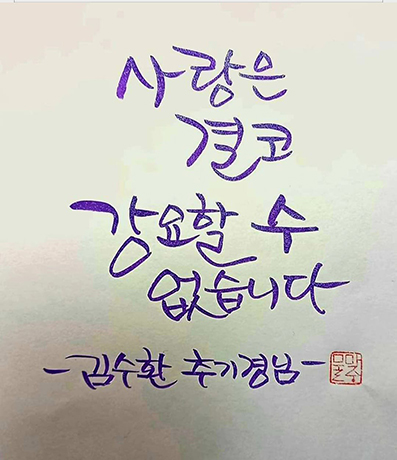 사랑은
결코
강요할 수
없습니다
-김수환 추기경님-